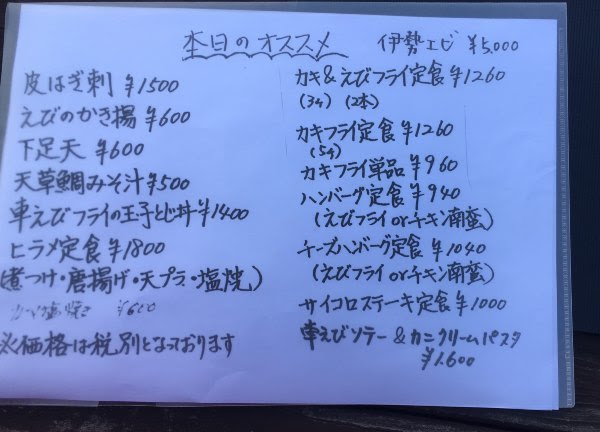 本日のオススメ
伊勢エビ ¥5,000
皮はぎ刺 ¥1500
えびのかき揚 ¥600
下足天 ¥600
天草鯛みそ汁 ¥500
車えびフライの玉子とじ丼 ¥1400
ヒラメ定食 ¥1800
(煮つけ・唐揚げ・天プラ・塩焼)
塩焼き ¥600
※価格は税別となっております
カキ&えびフライ定食 ¥1260
(3ケ) (2本)
カキフライ定食 ¥1260
(5ケ)
カキフライ単品 ¥960
ハンバーグ定食 ¥940
(えびフライorチキン南蛮)
チーズハンバーグ定食 ¥1040
(えびフライorチキン南蛮)
サイコロステーキ定食 ¥1000
車えびソテー&カニクリームパスタ
¥1.600